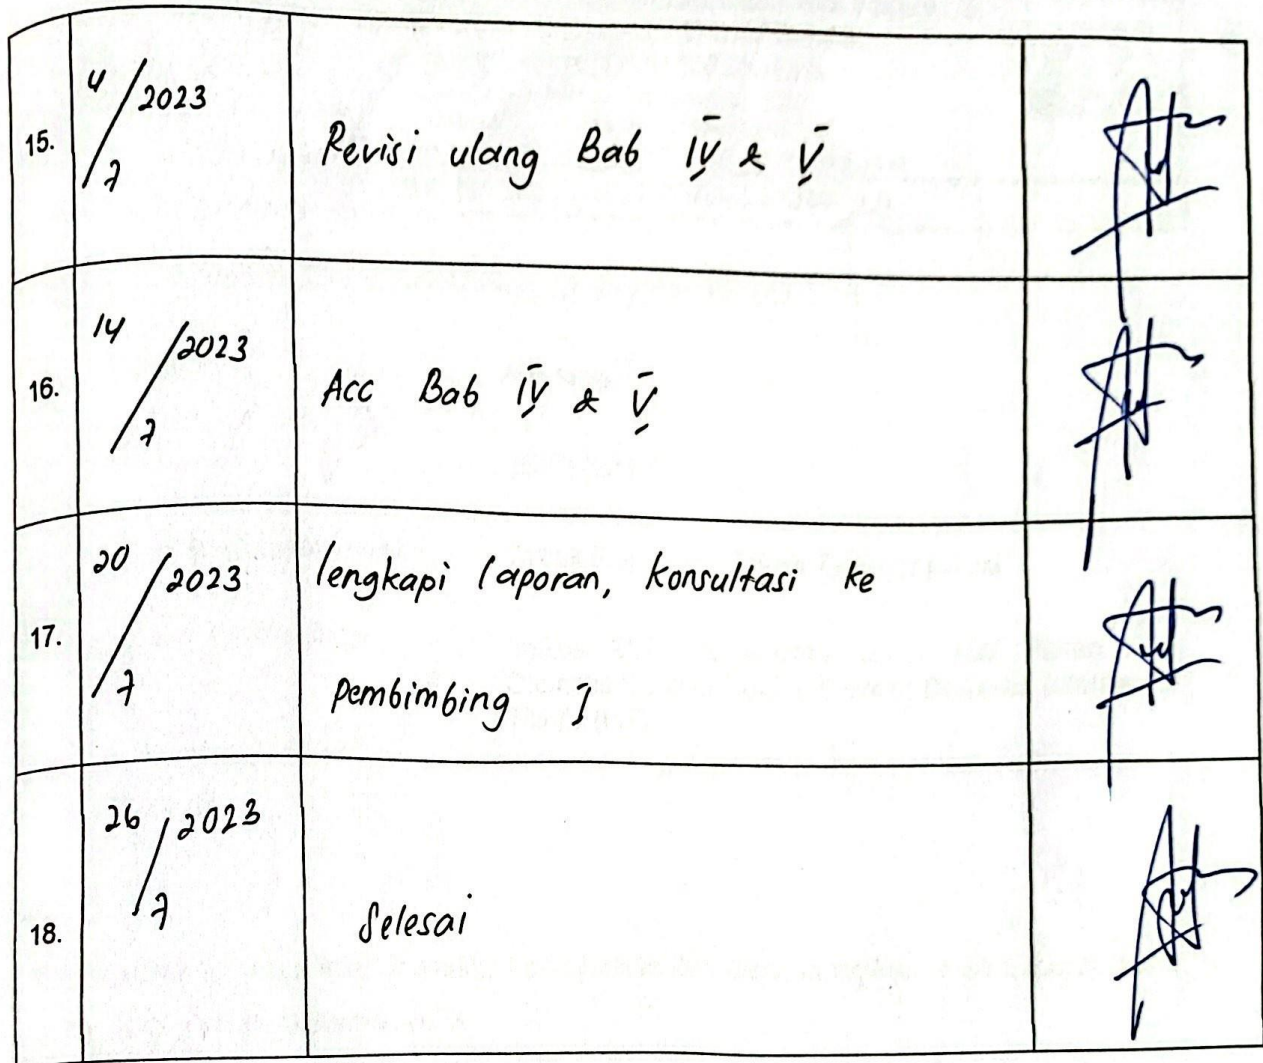 15. 4/7 2023 Revisi ulang Bab IV & V
16. 14/7 2023 Acc Bab IV & V
17. 20/7 2023 lengkapi laporan, konsultasi ke
pembimbing I
18. 26/7 2023 Selesai